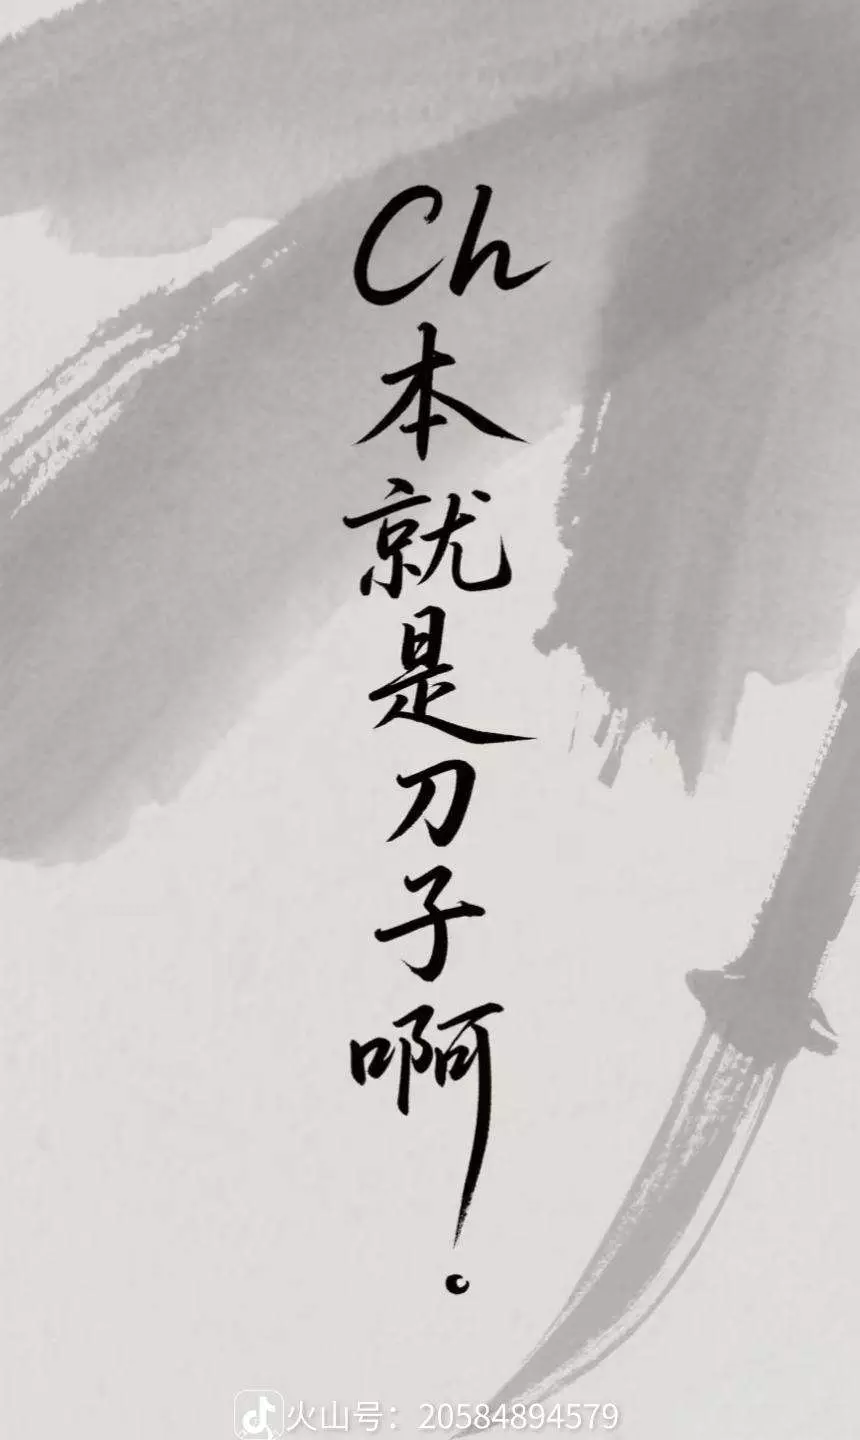 Ch本就是刀子啊。
火山号：20584894579